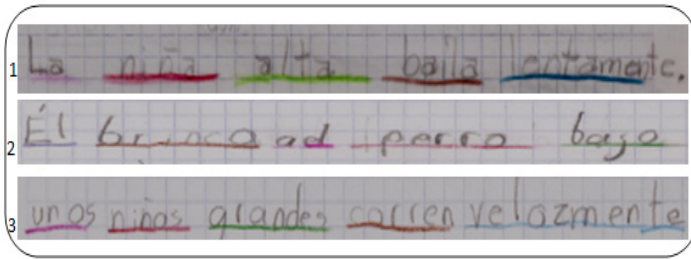 1 La niña alta baila lentamente.
2 Él brinco ad perro bajo
3 unos niños grandes corren velozmente